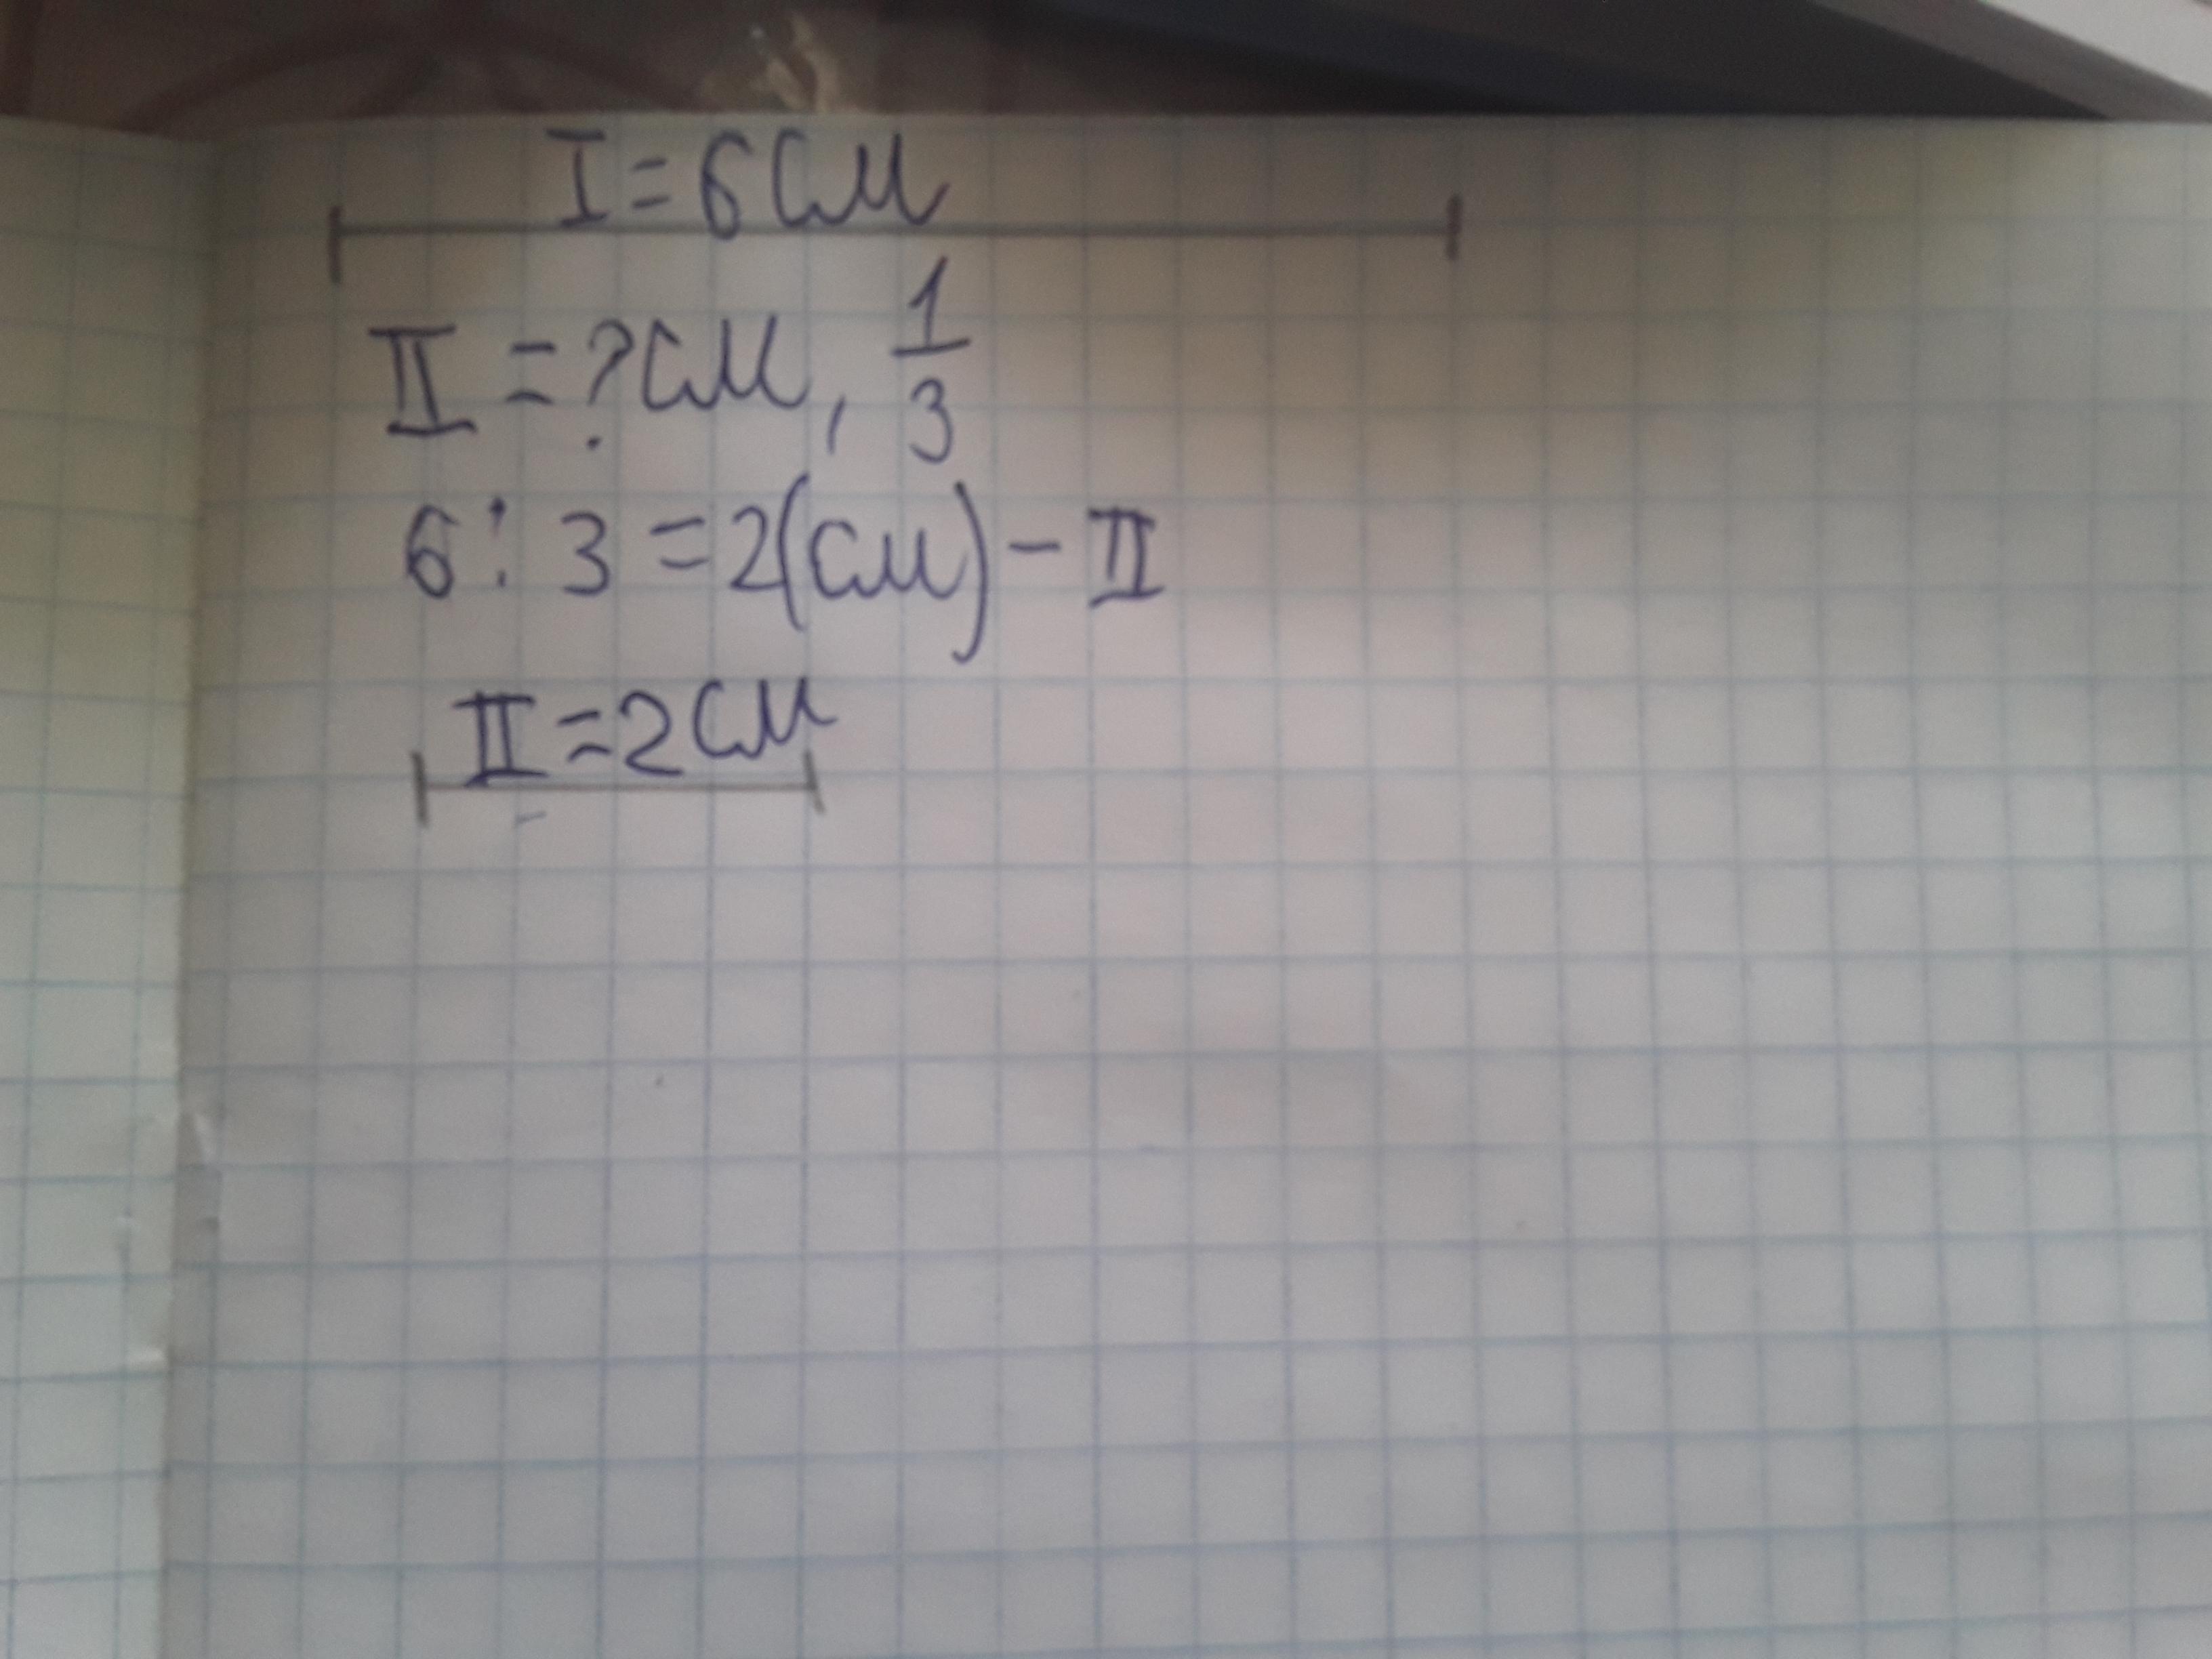 I = 6 см
II = ? см, 1/3
6 : 3 = 2 (см) - II
II = 2 см